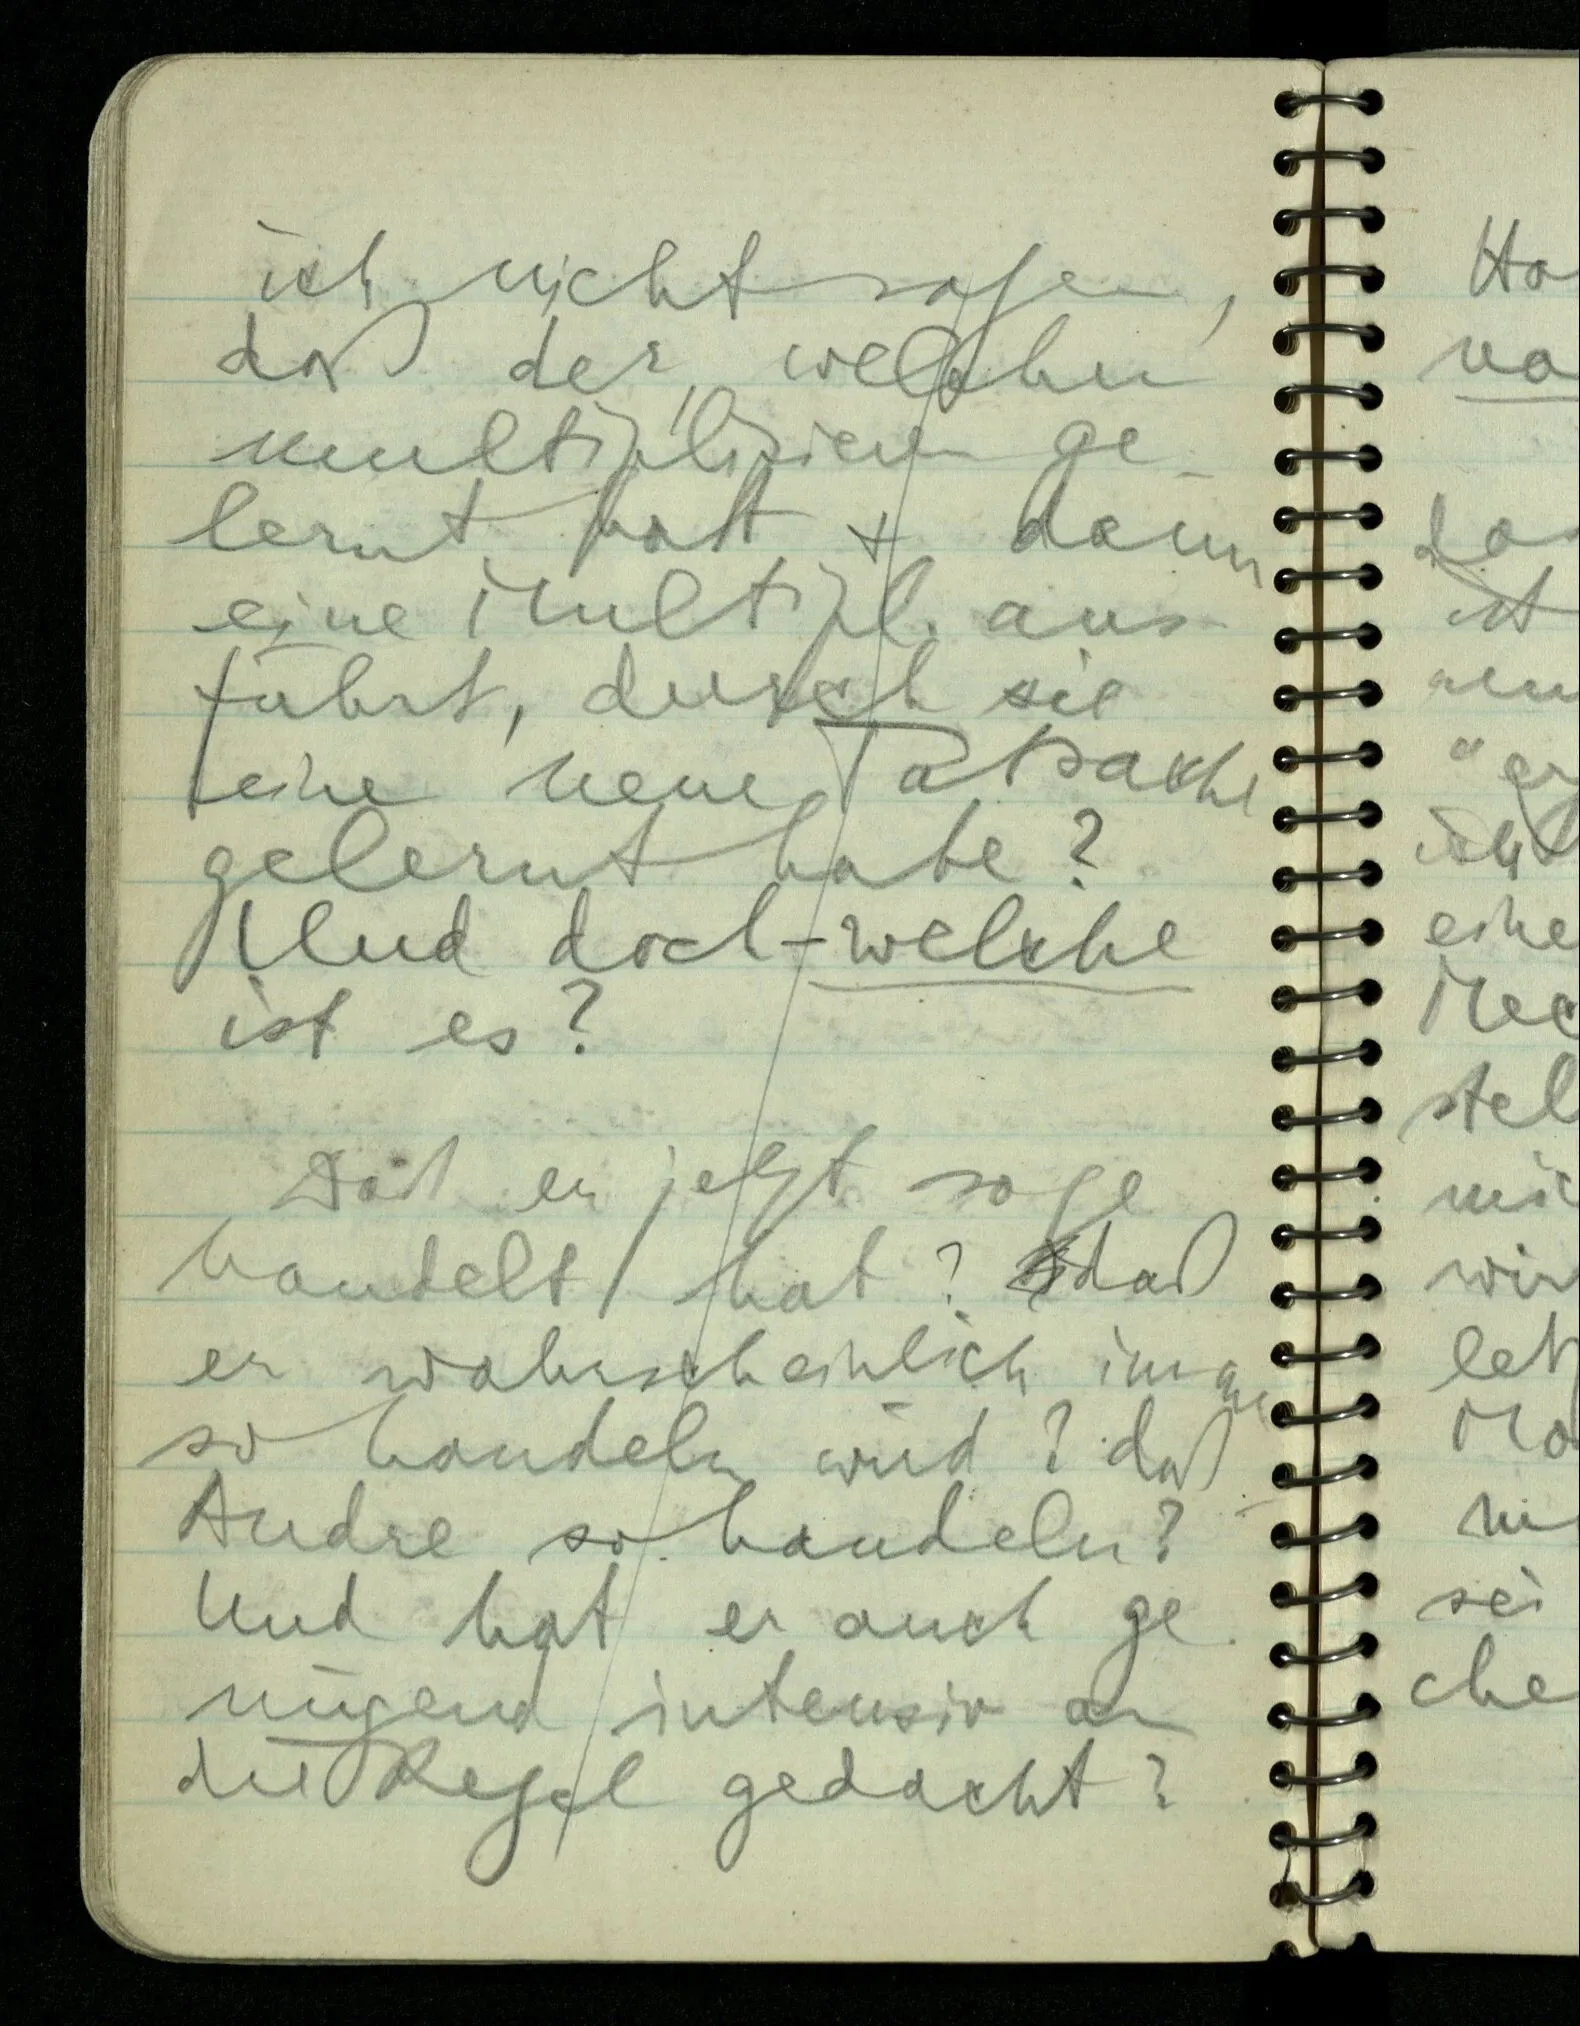 ich nicht sagen,
daß der, welcher
multiplizieren ge-
lernt hat + dann
eine Multipl. aus-
führt, durch sie
eine neue Tatsache
gelernt habe?
Und doch – welche
ist es?
Daß er jetzt so ge
handelt hat? daß
er wahrscheinlich immer
so handeln wird? daß
Andre so handeln?
Und hat er auch ge
nügend intensiv an
die Regel gedacht?
Ha
va
das
ist
"er
ich
eine
Mec
stel
mic
wir
let
Ma
sei
che